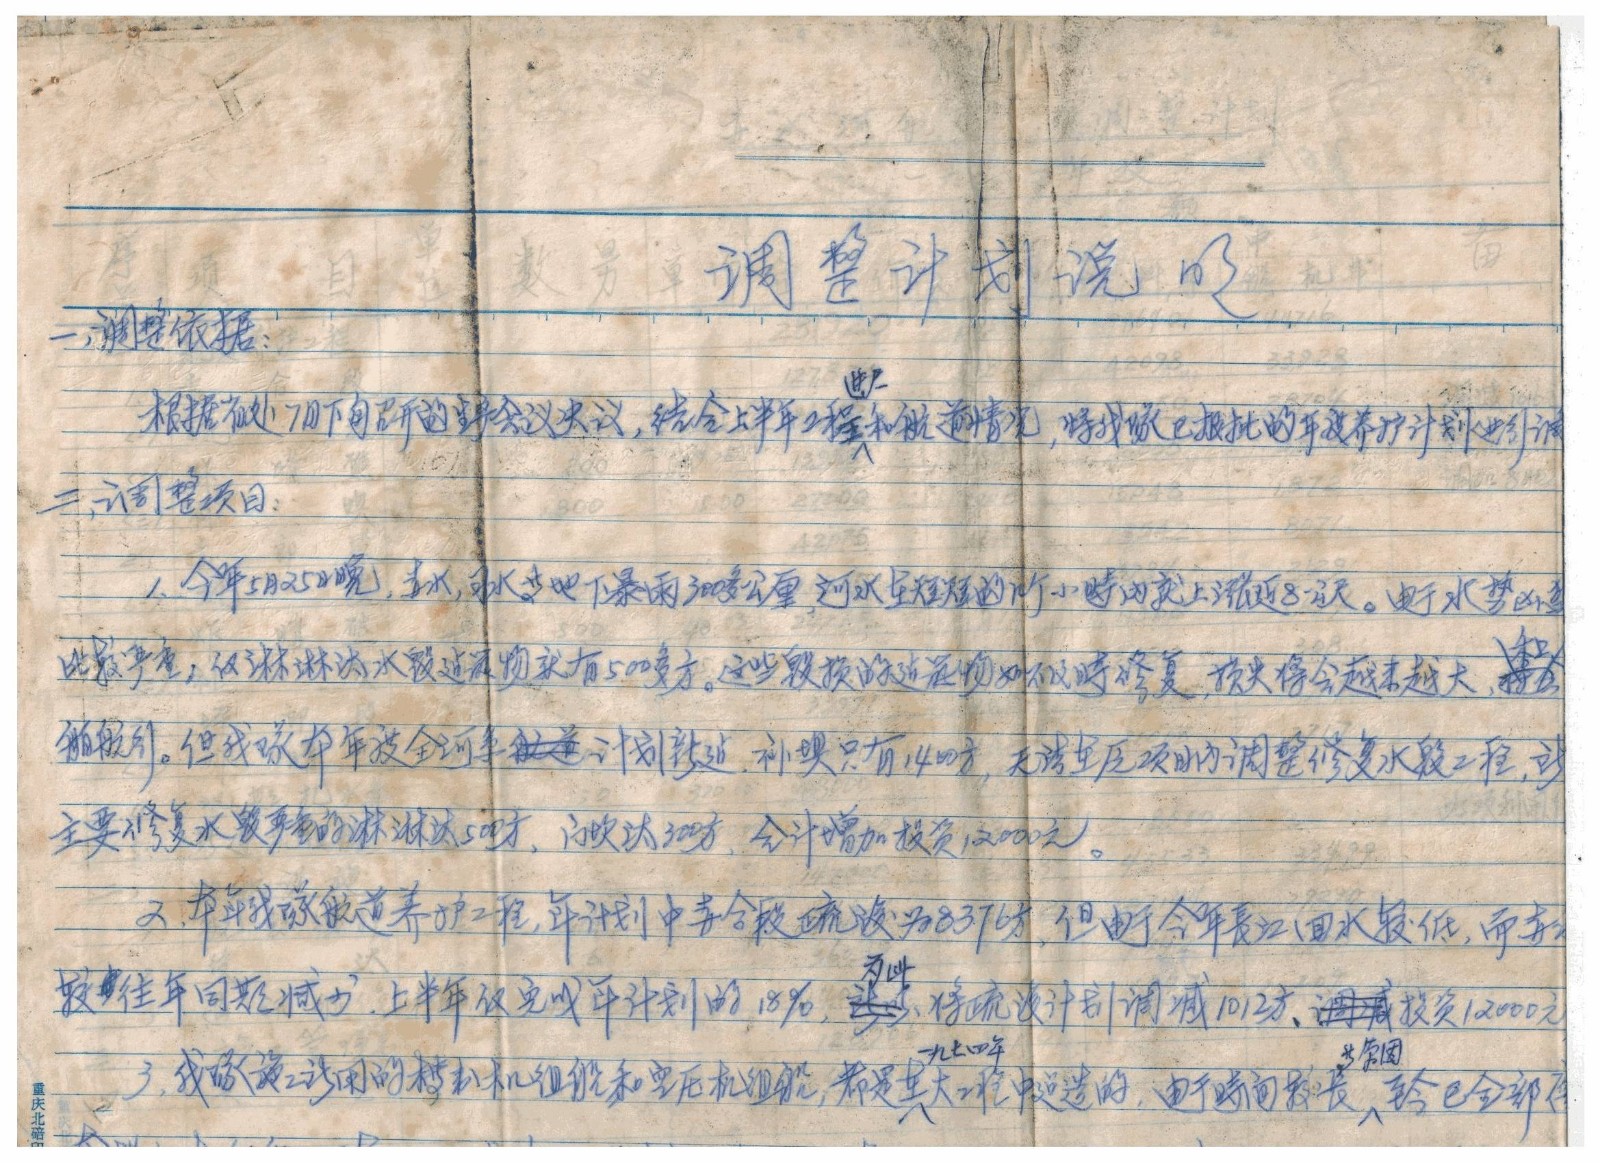 调整计划说明
一、调整依据：
根据省处7月下旬召开的会议决议，结合上半年工程进展和航道情况，将我队已报批的年度养护计划进行调
二、调整项目：
1、今年5月25日晚，水，水等地下暴雨300多公厘，河水在短短的几个小时内就上涨近8公尺。由于水势凶
比较严重，仅淋淋达水毁建筑物就有500多方。这些毁损的建筑物如不及时修复，损失将会越来越大，和
船航行。但我队本年度全河系计划新建、补填只有1400方，无法在原项目内调整修复水毁工程，
主要修复水毁严重的淋淋达500方，门坎达300方，合计增加投资12000元。
2、本年我队航道养护工程，年计划中弃合段疏浚为8376方，但由于今年长江回水较低，而弃
较往年同期减少，上半年仅完成年计划的18%，为此，将疏浚计划调减1012方、投资12000元
3、我队施工所用的机组船和空压机组船，都是一九七四年大工程中建造的，由于时间较长等原因，至今已全部
重庆北碚印